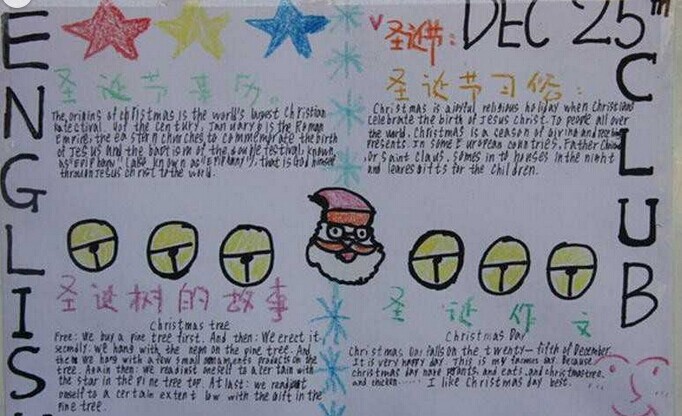 ENGLISH
CLUB
圣诞节: DEC 25th
圣诞节来历。
The origins of christmas is the world's largest Christian
of the century, January 6 is the Roman
Empire; the eastern churches to commemorate the birth
of Jesus and the baptism of the double festival, known
as "Epiphany" (also known as "Epiphany"), that is God himself
through Jesus christ to the world.
圣诞节习俗:
Christmas is a joyful religious holiday when Christians
celebrate the birth of Jesus Christ. To people all over
the world, Christmas is a season of giving and receiving
presents. In some European countries, Father
Or Saint Claus, comes in to houses in the night
and leaves gifts for the children.
圣诞树的故事
Christmas tree
Free: We buy a pine tree first. And then: We erect it
secondly: we hang with the neon on the pine tree. And
then we hang with a few small ornaments products on the
tree. Again then: we readjust oneself to a certain with
the star in the pine tree top. At last: we readjust
oneself to a certain extent low with the gift in the
pine tree.
圣诞作文
Christmas Day
Christmas Day falls on the twenty-fifth of December.
It is very happy day. This is my famous day. Because
christmas day have and eats, and christmas tree,
and chicken...... I like Christmas day best. ....